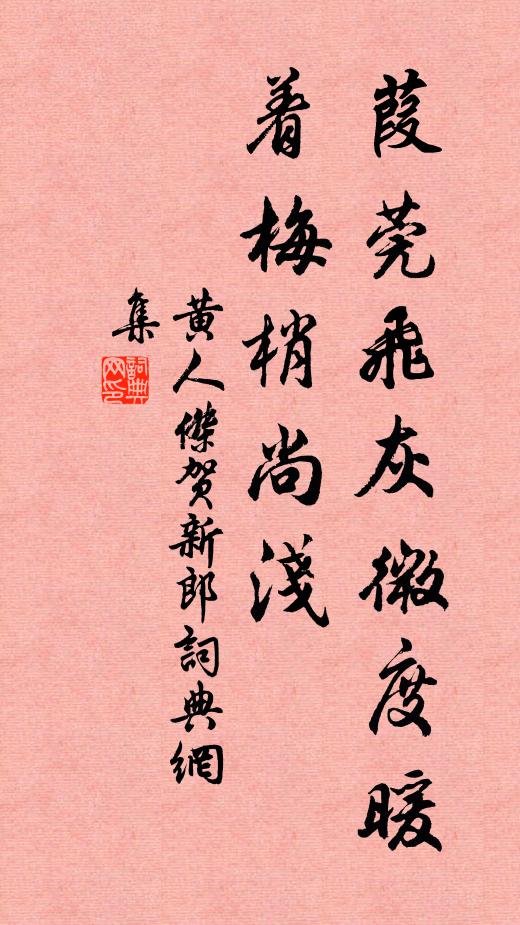 葭莞飛灰微度暖
着梅梢尚淺
黄人傑賀新郎詞典網
集
詞典
网印